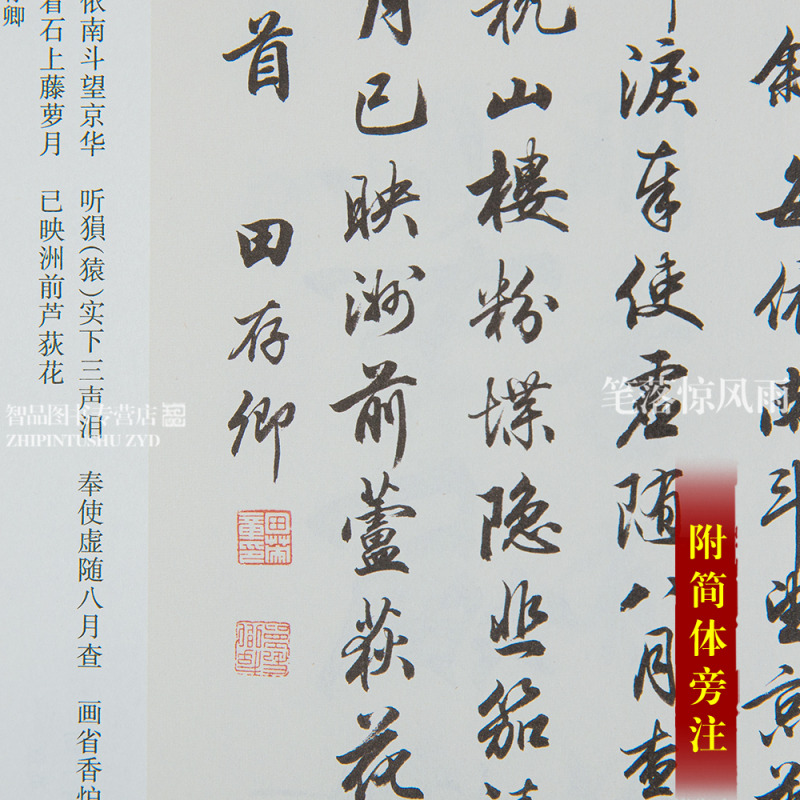 斜每依南斗望京華
淚奉使虛随八月查
枕山樓粉堞隐悲笳請
月已映洲前蘆荻花
首 田存卿
依南斗望京华 听(猿)实下三声泪 奉使虚随八月查 画省香炉
看石上藤萝月 已映洲前芦荻花
卿
笔落惊风雨
附简体旁注
智品图书专营店
ZHIPINTUSHU ZYD